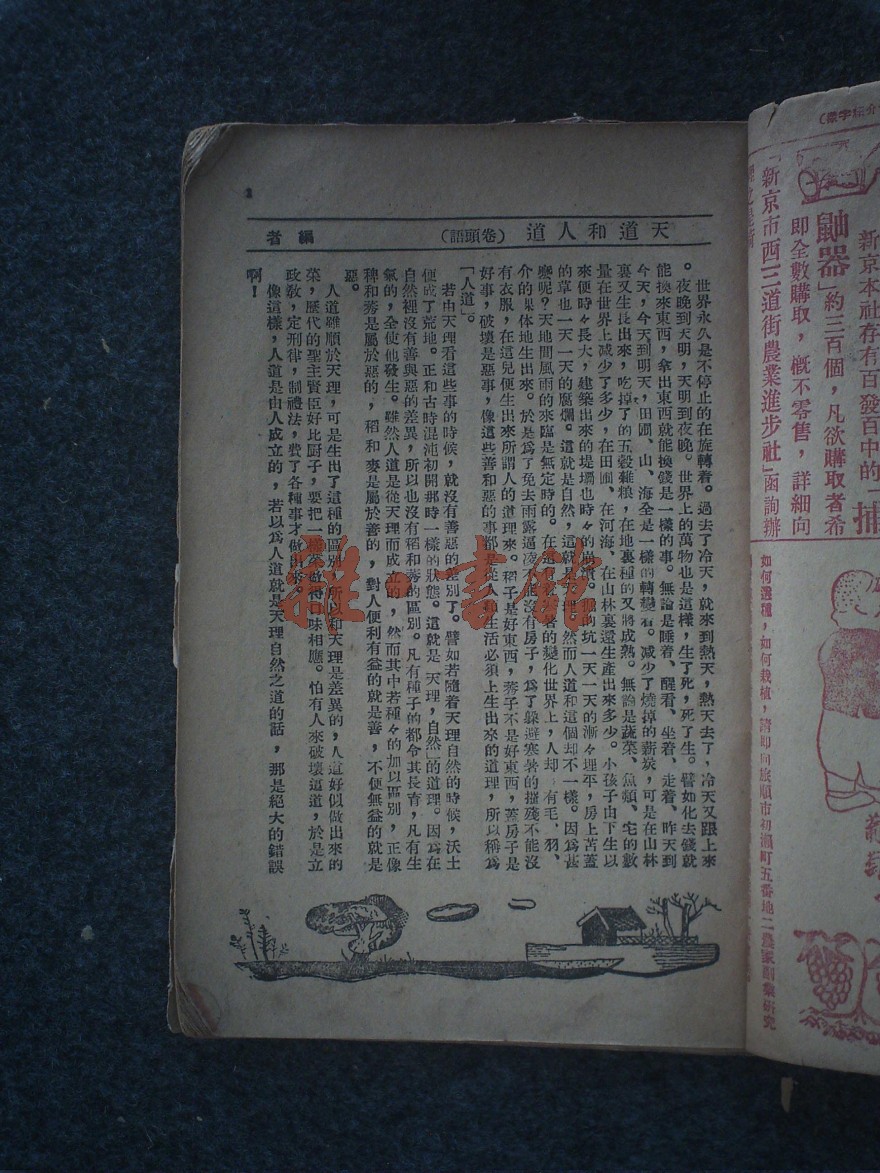 天道和人道 (卷頭語) 編者
世界永久是不停止的在旋轉着。過去了冷天，就來到熱天，熱天去了，冷天又跟上來
。夜晚到天明，天明到夜晚。世界上的萬物也是這樣，生了死，死了生。譬如化去錢就
能換來東西，拿出東西就能換錢是一樣的事。無論是睡着、醒着、坐着、走着、昨天到
今天，今天到明天，田圃、山、海全是一樣的轉變着。減少了燒掉的薪炭，可是在山林
裏又生長出來，吃掉了的五穀雜粮，在地裏種的又將成熟。無論是蔬菜、魚類、宅的數
量在世界上減少了多少，在田圃、在河海、在山林裏還生產出來多少。小孩子由下生以
來便時々長大，建築出來的堤堨也時々的崩壞。掘的坑一天一天的漸々埋平，房上苫蓋
的草也一天一天的腐爛。這就是自然，這就是天理。然而人道和這個却不一樣。因爲甚
麽呢？天地間風雨的來臨是無定時的。在這寒暑的變化世界上，人却沒有毛、羽、
介的果体地生出來。於是爲了免去雨露邁凌不能沒有房子，爲了躲避寒暑的摧殘不能沒
有衣服，在這兒便生出來所謂人的道理來。稻子是好東西，莠子不是好東西，蓋房子是
好事，破壞是惡事，像這些善和惡的事都是從人和生活必須上生出來的道理，所以稱爲
「人道」。
若由天理看這些事的時候，就沒有善惡的差別了。譬如若隨着天理自然的時候，沃土
便成了荒地。正和古時混沌初開那時一樣的狀態。這就是「天理，自然」的道理。因爲在
自然裡沒有善與惡的差異，所以也沒有稻和莠的區別。凡有種子的都令其長育，凡有生
氣的，全使他發生。雖然人道是從天理而成立的，然而其中若種々的加以區別，正像
稗和莠是屬於惡的，稻和麥是屬於善的，對人便利有益的就是善，不便無益的就是
惡。
人道雖順於天理，可是生出了這種的區別，所以和天理是差異的，人道好似做出來的
菜，歷代的聖主賢臣好比厨子，要把一樣菜做得口味相應。怕有人來破壞這道，於是立
政教，定刑律，制禮法，費了各種事才做出來。
像這樣，人道是由人成立的，若以爲人道就是天理自然之道的話，那是絕大的錯誤
啊！
雅心書邸
新京本社存有百發百中的「捕
鼬器」約三百個，凡欲購取者希
即全數購取，槪不零售，詳細向
「新京市西三道街農業進步社」函詢辦
如何選種，如何栽植，請即向旅順市初瀨町五番地二農家副業研究